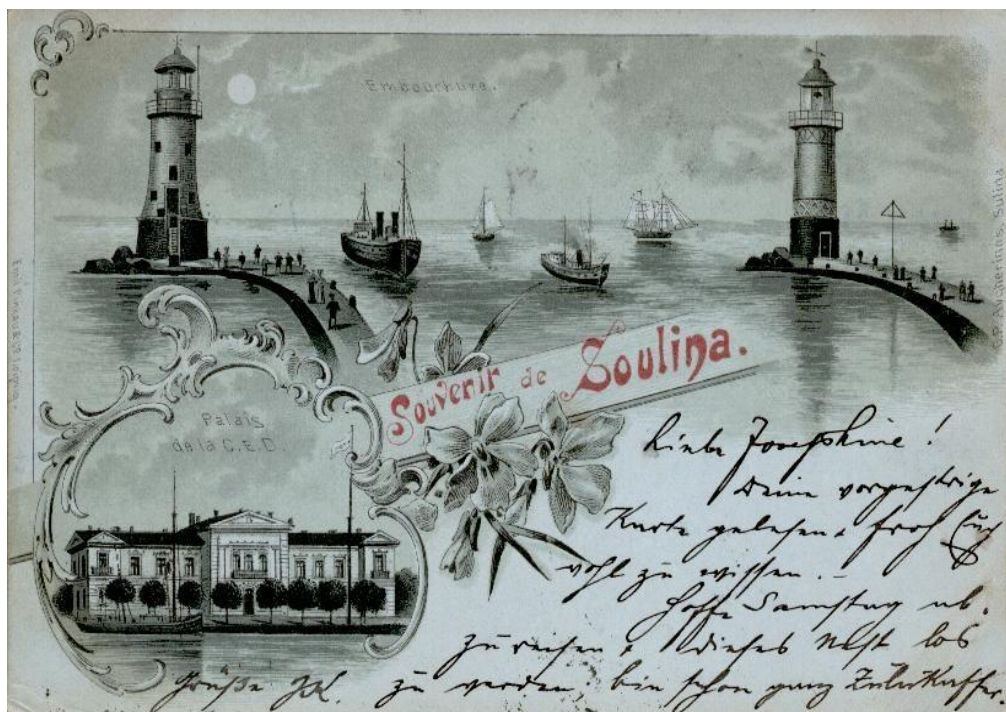 Embouchure.
Souvenir de Soulina.
Palais
de la C.E.D
Liebe Josephine!
Deine vorgestrige
Karte gelesen & froh Euch
wohl zu wissen. –
Hoffe Samstag ab-
zureisen & dieses Nest los
zu werden, bin schon ganz Zulukaffer.
Grüße